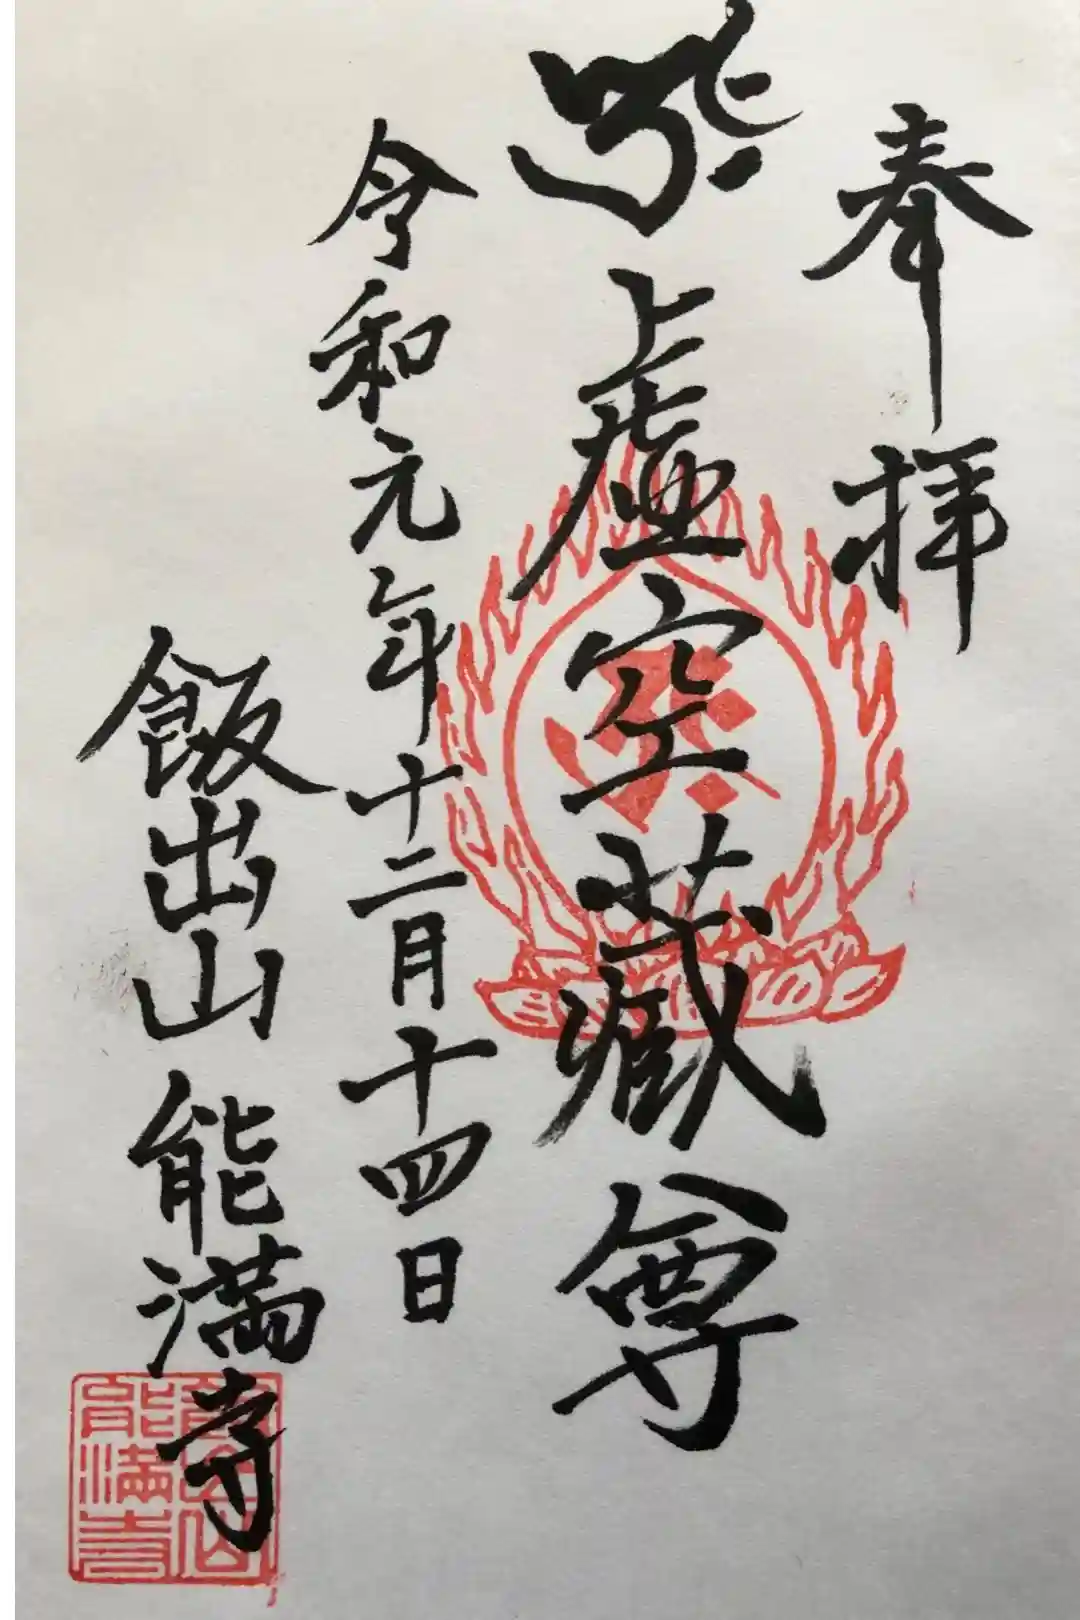 奉拝
𑖝𑖿𑖨𑖾 虚空蔵尊
令和元年十二月十四日
飯出山 能満寺
能満寺